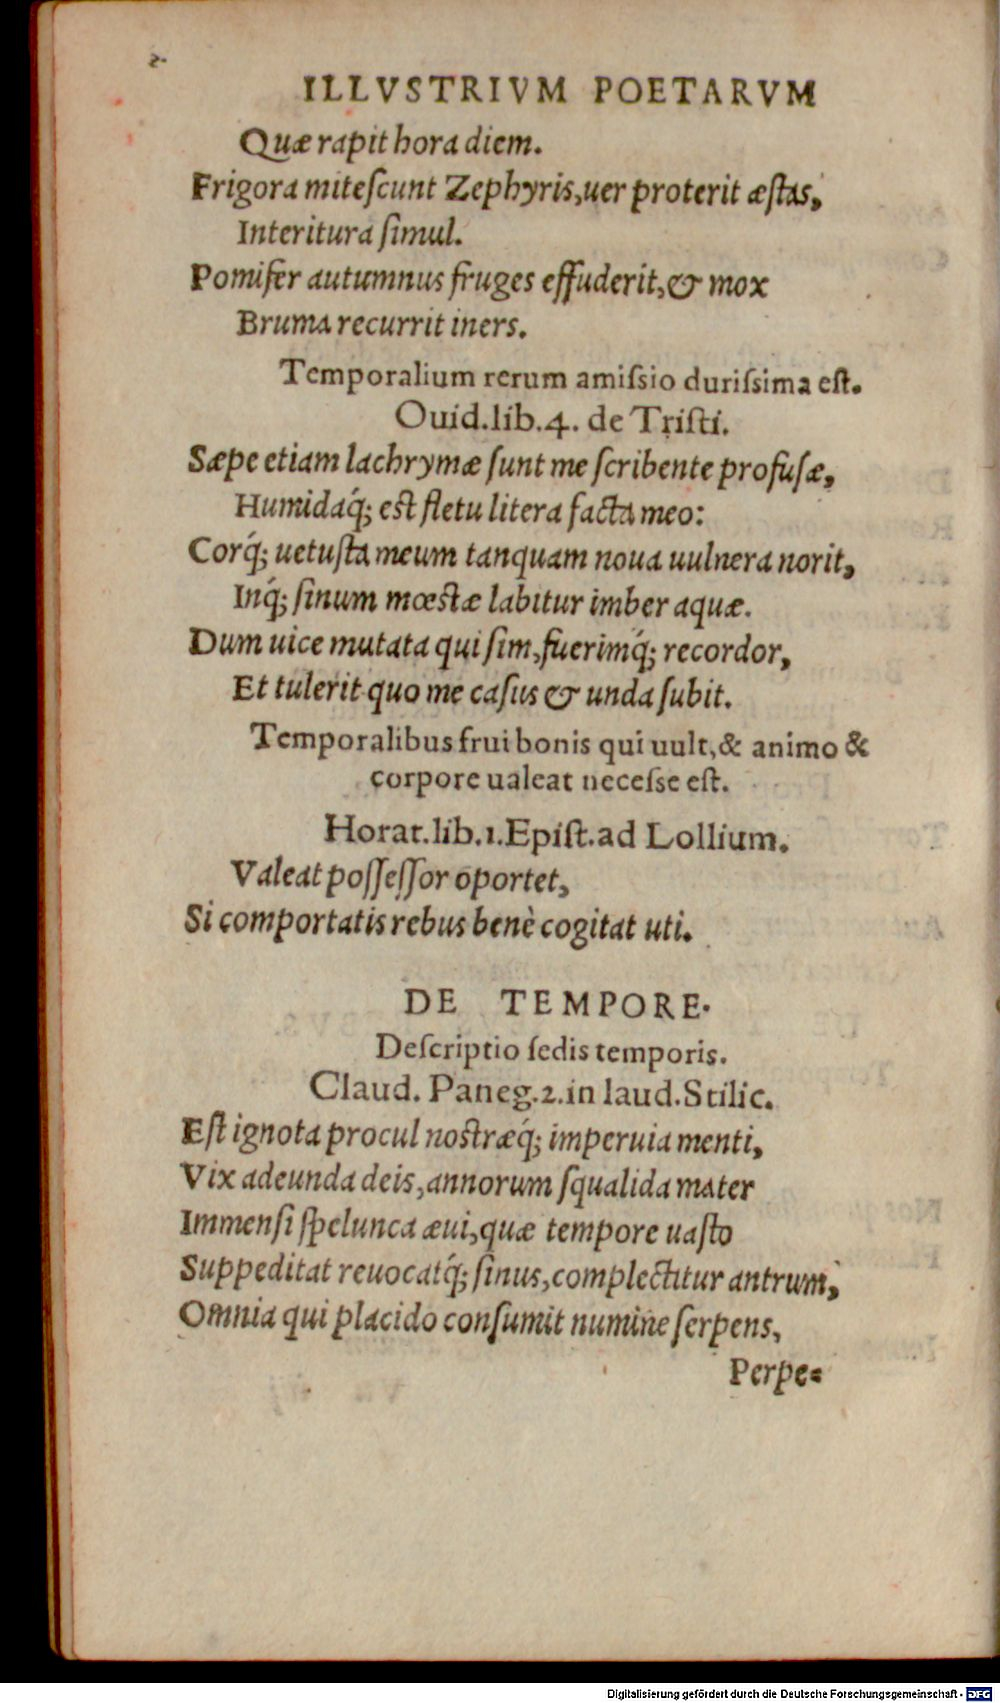 ILLVSTRIVM POETARVM
Quæ rapit hora diem.
Frigora miteſcunt Zephyris,uer proterit æſtas,
Interitura ſimul.
Pomifer autumnus fruges effuderit,& mox
Bruma recurrit iners.
Temporalium rerum amiſsio duriſsima eſt.
Ouid.lib.4. de Triſti.
Sæpe etiam lachrymæ ſunt me ſcribente profuſæ,
Humidaq́; eſt fletu litera facta meo:
Corq́; uetuſta meum tanquam noua uulnera norit,
Inq́; ſinum mœſtæ labitur imber aquæ.
Dum uice mutata qui ſim,fuerimq́; recordor,
Et tulerit quo me caſus & unda ſubit.
Temporalibus frui bonis qui uult,& animo &
corpore ualeat neceſse eſt.
Horat.lib.1.Epiſt.ad Lollium.
Valeat poſſeſſor oportet,
Si comportatis rebus benè cogitat uti.
DE TEMPORE.
Deſcriptio ſedis temporis.
Claud. Paneg.2.in laud.Stilic.
Eſt ignota procul noſtræq́; imperuia menti,
Vix adeunda deis,annorum ſqualida mater
Immenſi ſpelunca æui,quæ tempore uaſto
Suppeditat reuocatq́; ſinus,complectitur antrum,
Omnia qui placido conſumit numine ſerpens,
Perpe=
Digitalisierung gefördert durch die Deutsche Forschungsgemeinschaft - DFG